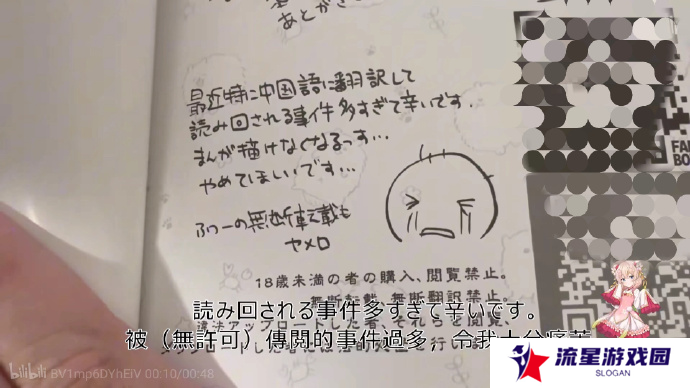 あとがき
最近特に中国語に翻訳して
読み回される事件多すぎて辛いです.
まんが描けなくなるっす…
やめてほしいです…
ふつーの無断転載も
ヤメロ
18歳未満の者の購入、閲覧禁止。
無断転載、無断翻訳禁止
読み回される事件多すぎて辛いです。
被（無許可）傳閲的事件過多，令我十分痛苦
FAN
BO
bilibili BV1mp6DYhEiV 00:10/00:48
流星游戏园
SLOGAN